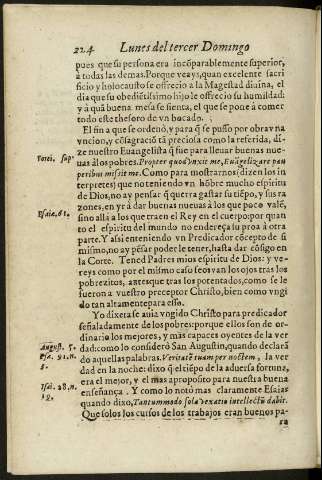 224 Lunes del tercer Domingo
pues que su persona era incõparablemente superior,
à todas las demas. Porque veays, quan excelente sacri
ficio y holocausto se offrecio a la Magestad diuina, el
dia que su obedientissimo hijo le offrecio su humildad
y à quã buena mesa se sienta, el que se pone à comer
todo este thesoro de vn bocado.
El fin a que se ordenò, y para q̃ se passò por obra vna
vncion, y cõsagraciõ tã preciosa como la referida, di-
ze nuestro Euangelista q̃ fue para lleuar buenas nue-
Vbi sup.
uas âlos pobres. Propter quod vnxit me, Euãgelizare pau
peribus misit me. Como para mostrarnos (dizen los in
terpretes) que no teniendo vn hõbre mucho espiritu
de Dios, no ay pensar q̃ querra gastar su tiẽpo, y sus ra
zones, en yr à dar buenas nueuas à los que poco valẽ,
Esaiæ, 61.
sino allà a los que traen el Rey en el cuerpo: por quan
to el espiritu del mundo no endereça su proa à otra
parte. Y assi enteniendo vn Predicador cõcepto de si
mismo, no ay pẽsar poder le tener, hasta dar cõsigo en
la Corte. Tened Padres mios espiritu de Dios: y ve-
reys como por el mismo caso se os van los ojos tras los
pobrezitos, antes que tras los potentados, como se le
fueron a vuestro preceptor Christo, bien como vngi
do tan altamente para esso.
Yo dixera se auia vngido Christo para predicador
señaladamente de los pobres: porque ellos son de or-
dinario los mejores, y màs capaces oyentes de la ver
August.
dad: como lo consideró San Augustin, quando declarà
do aquellas palabras. Veritatẽ tuam per noctem, la ver
dad en la noche: dixo q̃ el tiẽpo de la aduersa fortuna,
era el mejor, y el mas aproposito para nuestra buena
Isai. 28.
enseñança. Y como lo notò mas claramente Esaias
quando dixo, Tantummodo sola vexatio intellectũ dabit.
Que solos los cursos de los trabajos eran buenos pa-